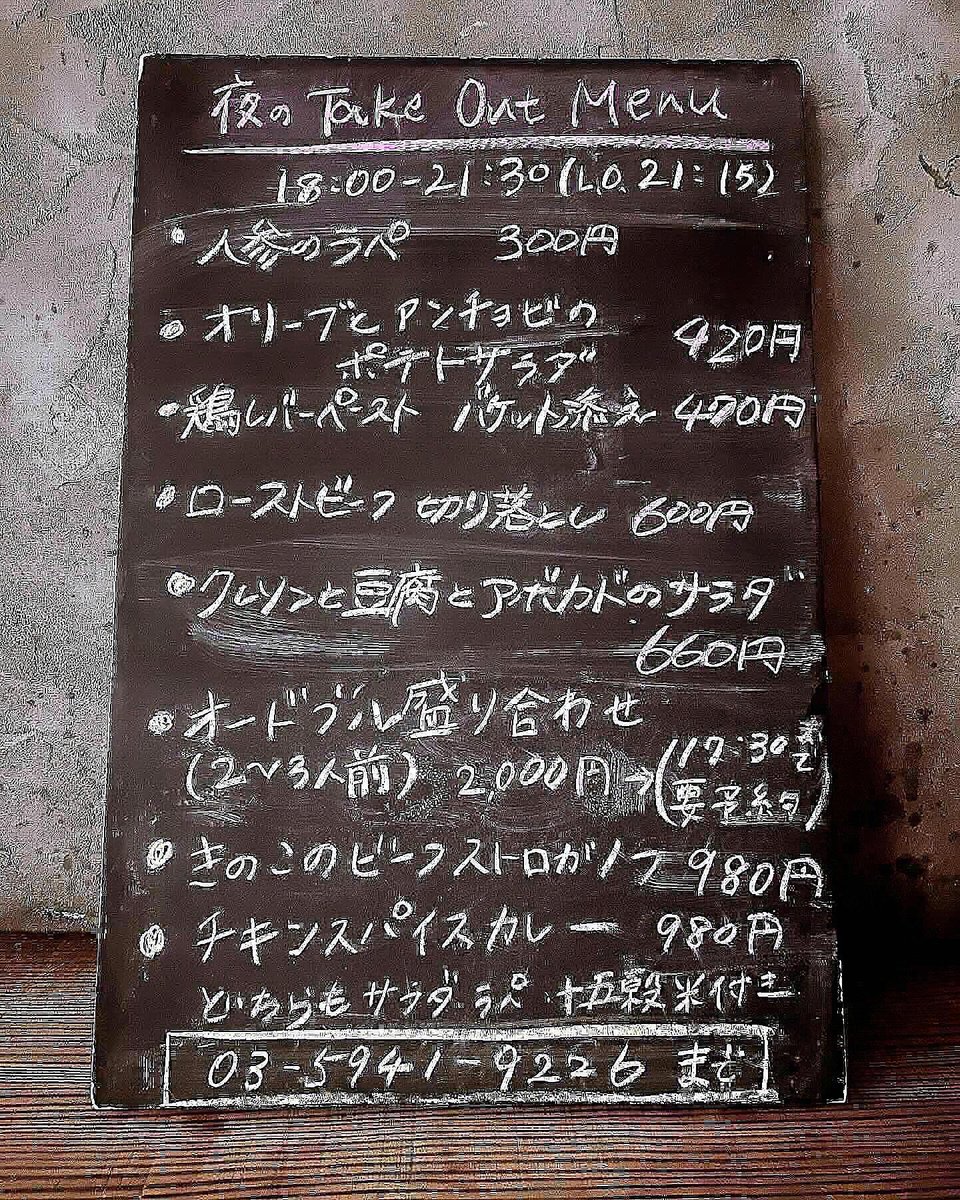 夜の Take Out Menu
18:00-21:30(L.O.21:15)
・人参のラペ 300円
・オリーブとアンチョビの
ポテトサラダ 420円
・鶏レバーペースト バケット添え 470円
・ローストビーフ 切り落とし 600円
・クレソンと豆腐とアボカドのサラダ
660円
・オードブル盛り合わせ
(2〜3人前) 2,000円→(17:30まで
要予約)
・きのこのビーフストロガノフ 980円
・チキンスパイスカレー 980円
どちらもサラダ・ラペ 十五穀米付き
03-5941-9226 まで